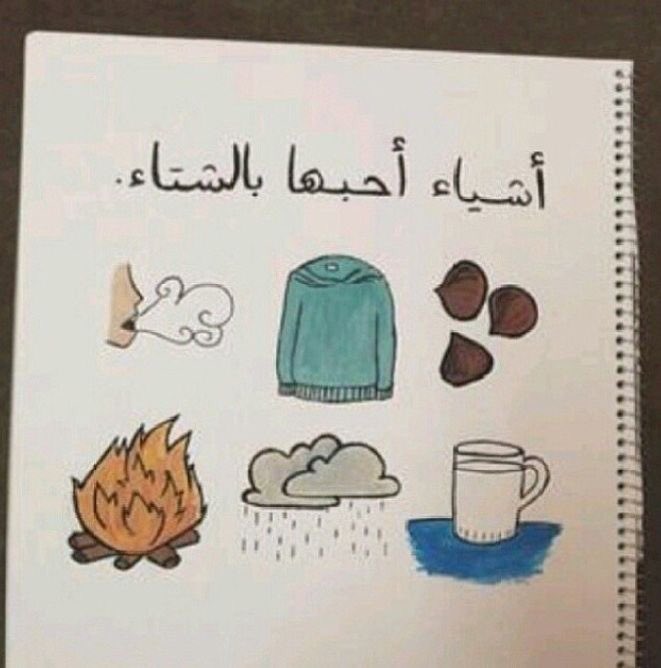 أشياء أحبها بالشتاء.